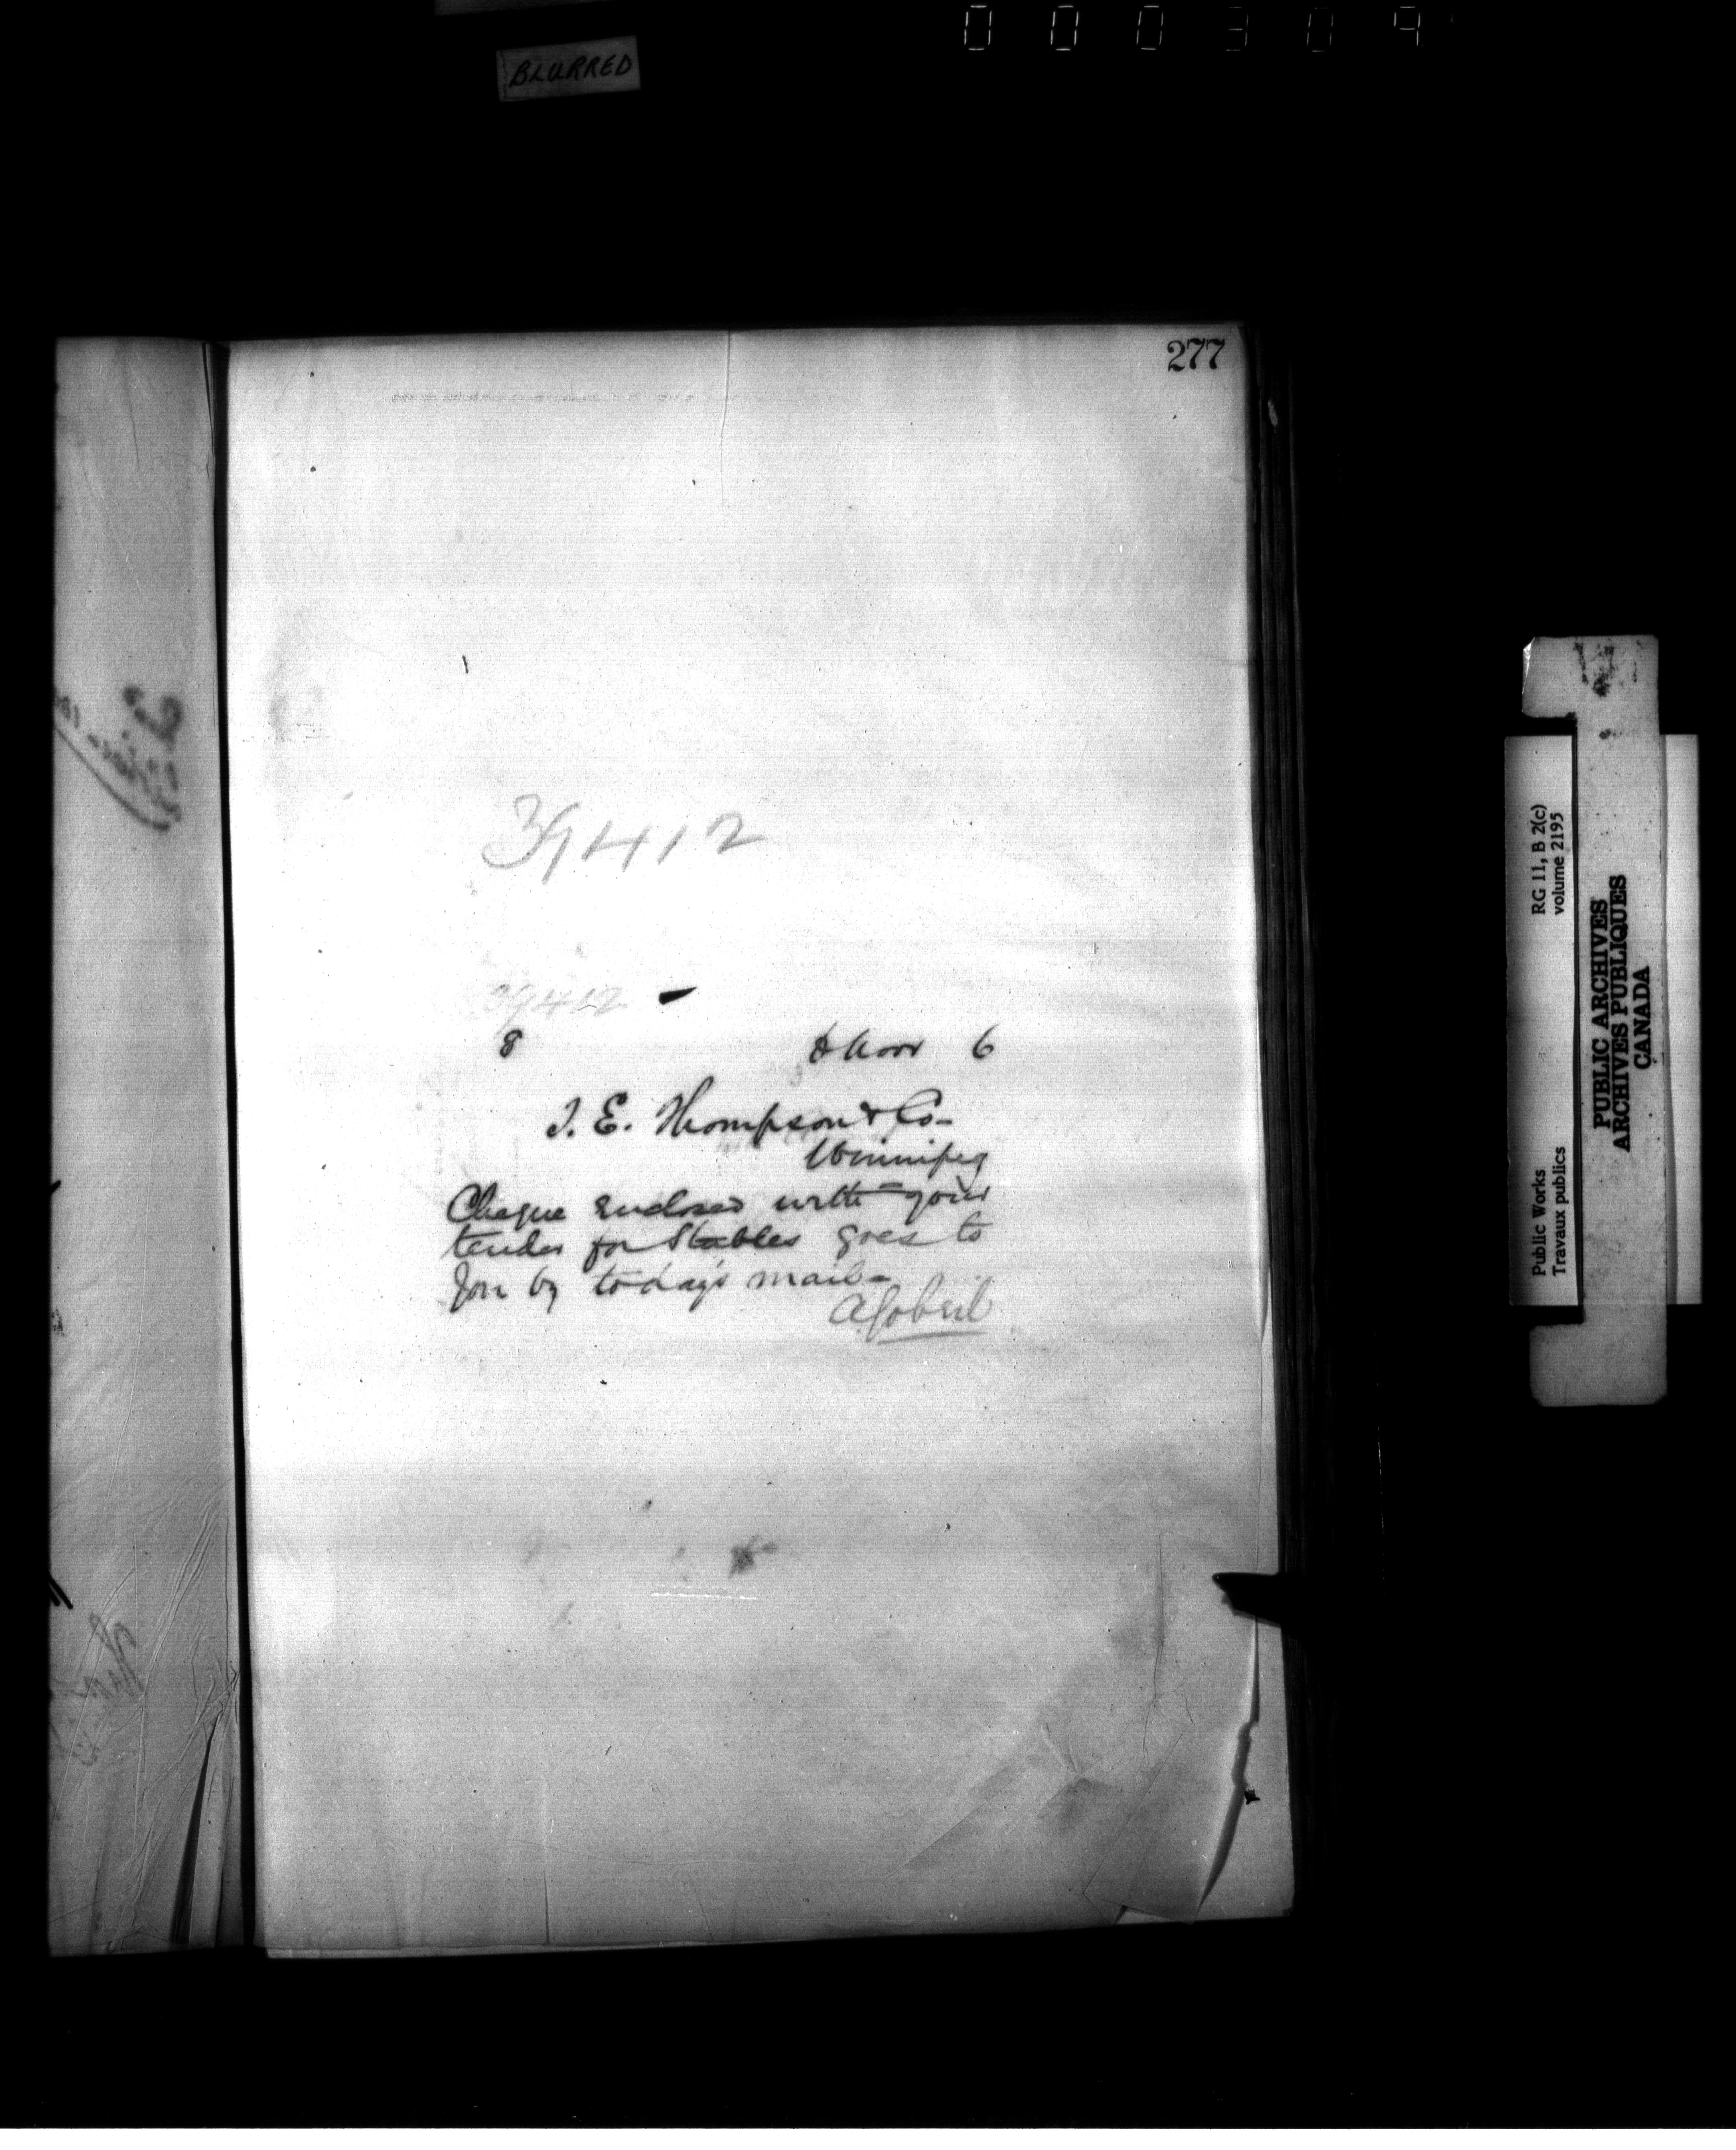 000309
BLURRED
277
39412
39412
8 6
J. E. Thompson & Co-
Winnipeg
Cheque enclosed with your
tender for Stables goes to
you by today's mail-
A Gobeil
Public Works RG 11, B 2(c)
Travaux publics volume 2195
PUBLIC ARCHIVES
ARCHIVES PUBLIQUES
CANADA